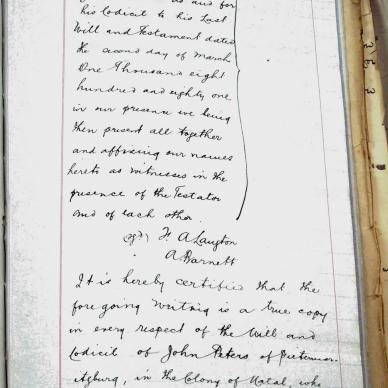 as and for
his Codicil to his Last
Will and Testament dated
the second day of March
One Thousand eight
hundred and eighty one
in our presence we being
then present all together
and affixing our names
hereto as witnesses in the
presence of the Testator
and of each other.
(sgd) F. A Laughton
A Barnett
It is hereby certified that the
foregoing writing is a true copy
in every respect of the Will and
Codicil of John Peters of Pietermar-
itzburg, in the Colony of Natal, who